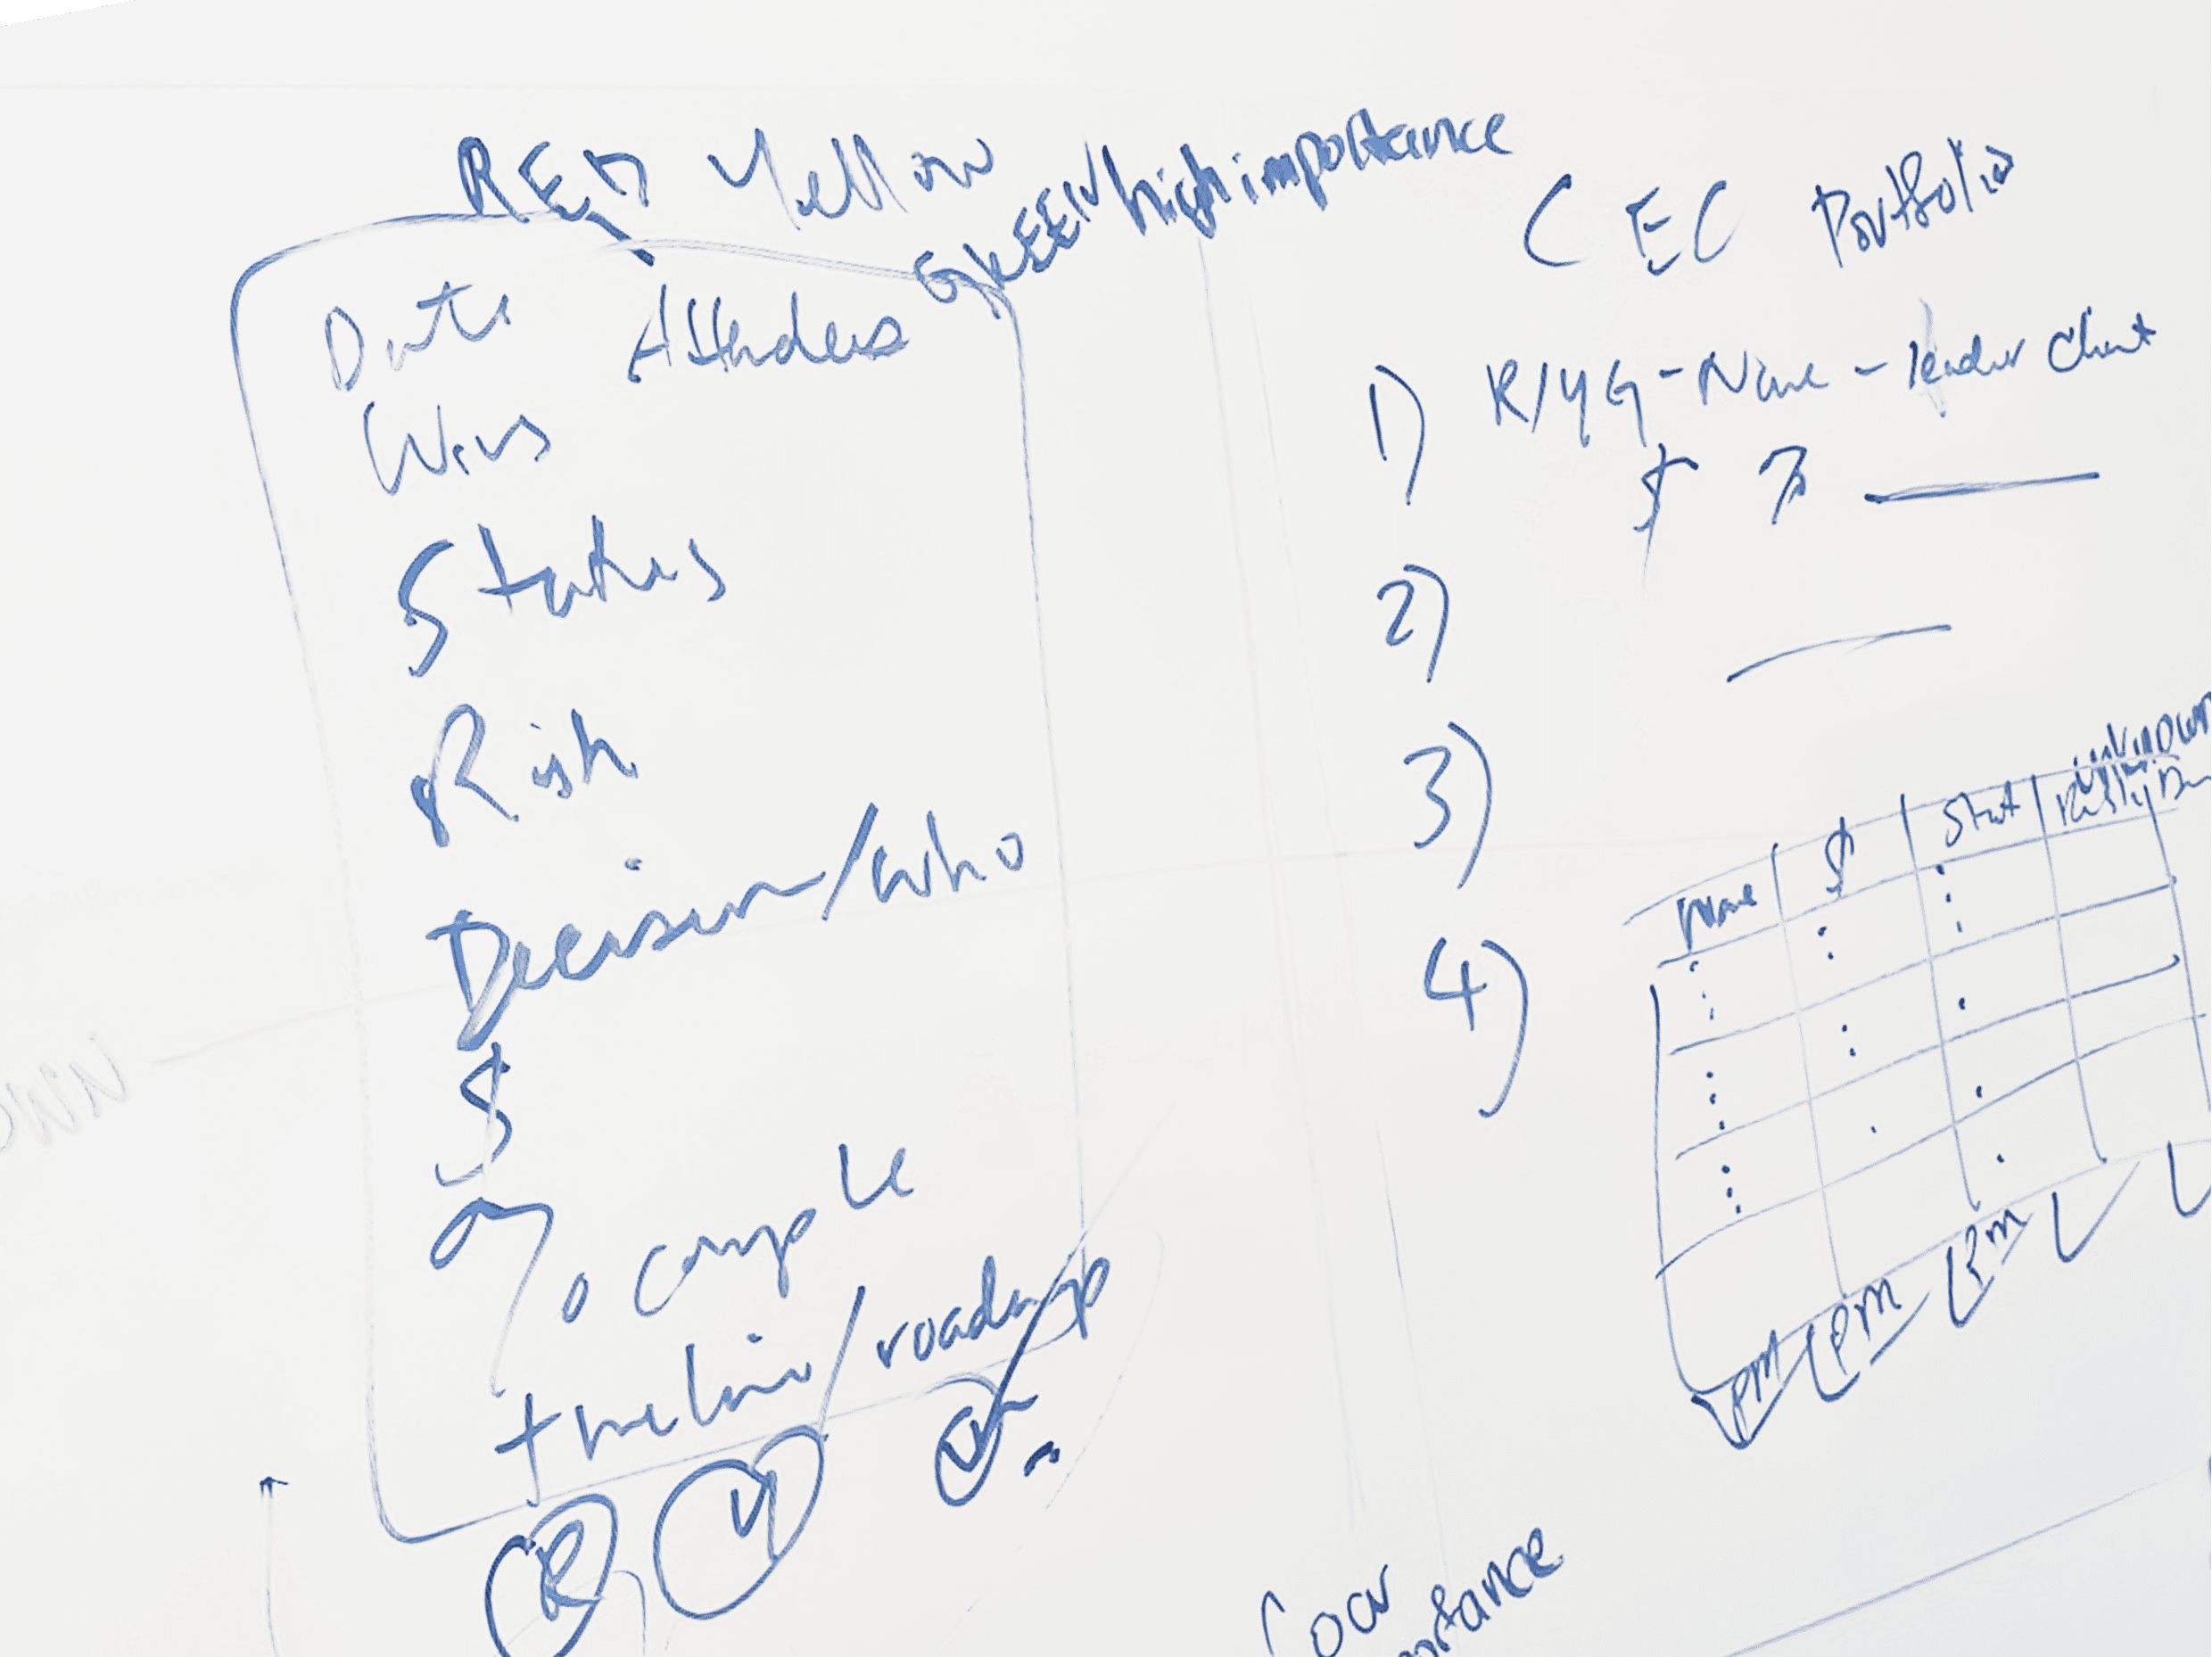 RED Yellow GREEN/high importance
Date Attendees
Wins
Status
Risk
Decision/who
$
% comple
timeline/roadmap
R Y G
CEC Portfolio
1) R/YG - Name - leader Client
$ %
2)
3)
4)
unknown
Name $ Stat Risk
PM PM PM
OWN